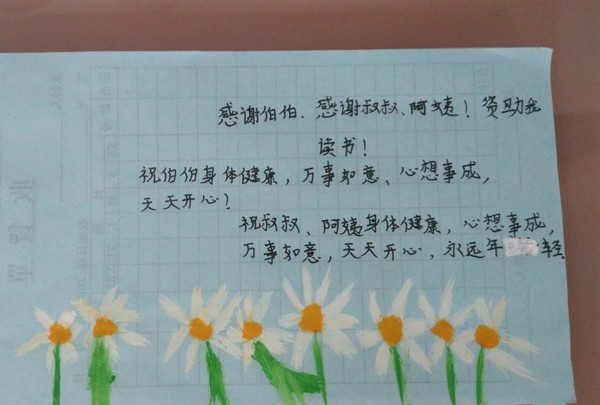 感谢伯伯、感谢叔叔、阿姨！资助我
读书！
祝伯伯身体健康，万事如意、心想事成，
天天开心！
祝叔叔、阿姨身体健康，心想事成，
万事如意，天天开心，永远年轻